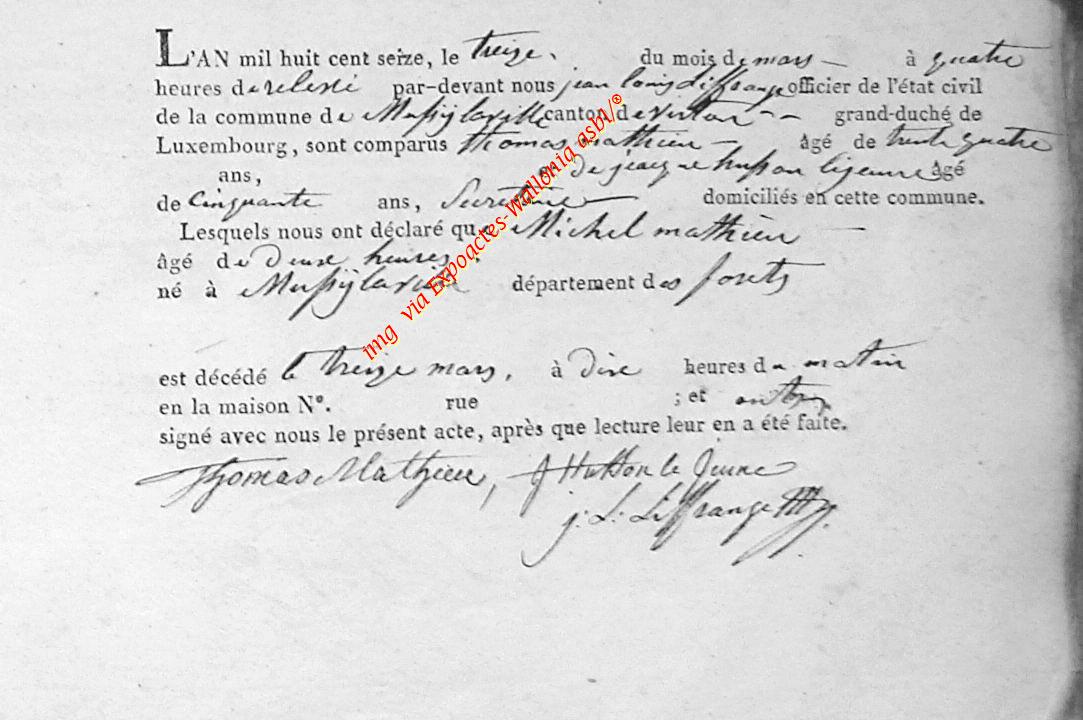 L'AN mil huit cent seize, le treize du mois de mars à quatre
heures de relevé par-devant nous jean louis Liffrange officier de l'état civil
de la commune de Mussÿ laville canton de virton grand-duché de
Luxembourg, sont comparus thomas mathieu âgé de trente quatre
ans, et de jacque husson le jeune âgé
de Cinquante ans, Secretaire domiciliés en cette commune.
Lesquels nous ont déclaré que Michel mathieu
âgé de Deuxe heures
né à Mussÿ laville département des forets
est décédé le treize mars, à dixe heures du matin
en la maison N°. rue ; et ont
signé avec nous le présent acte, après que lecture leur en a été faite.
Thomas Mathieu, J Husson le Jeune
j. L. Liffrange
img via Expoactes-Wallonia asbl/®